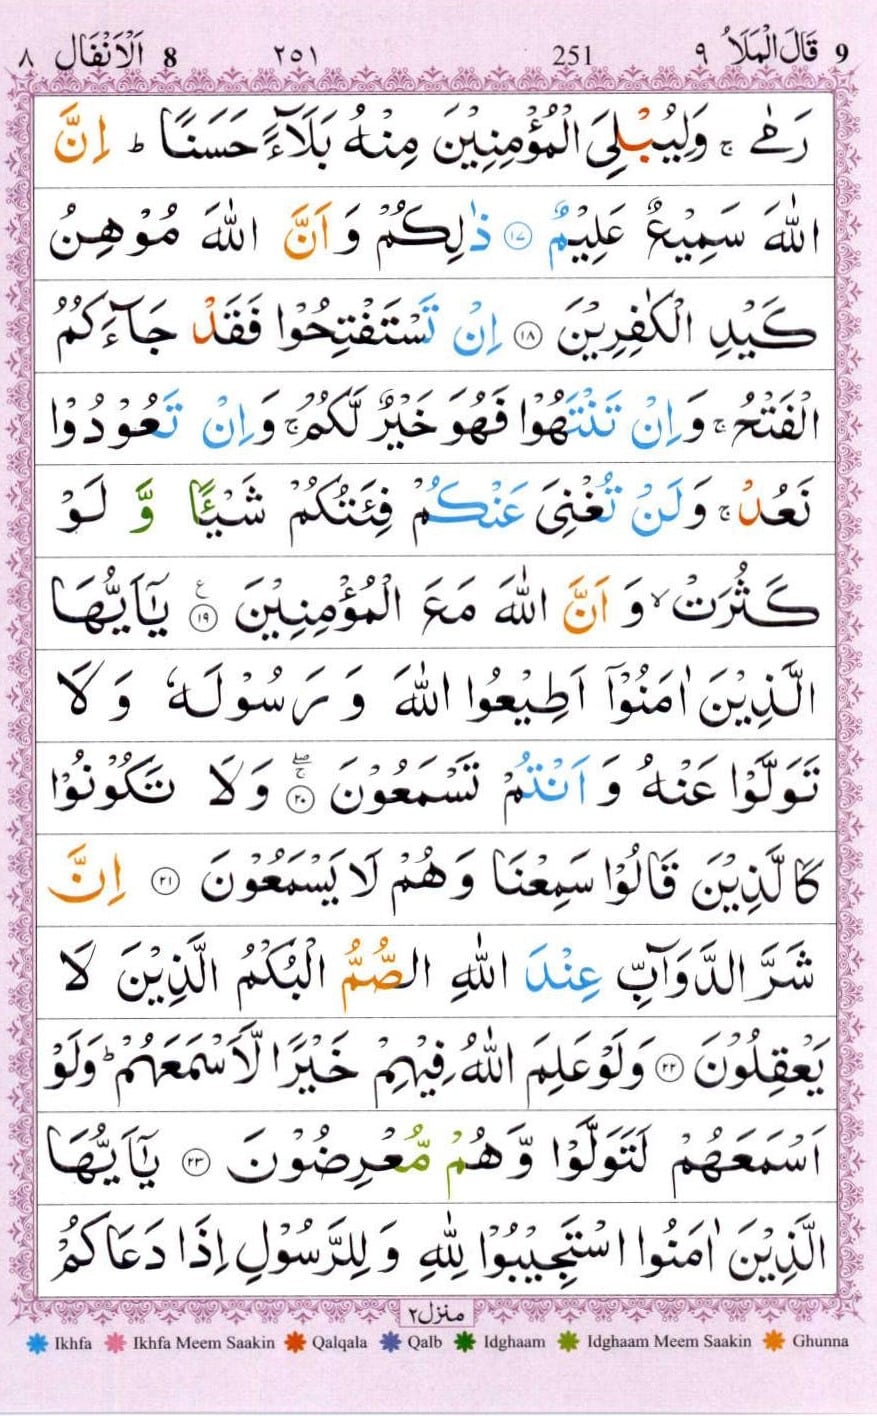 ٨ اَلْاَنْفَال 8 ٢٥١ 251 قَالَ الْمَلَاُ ٩ 9
رَمٰی ۚ وَلِيُبْلِیَ الْمُؤْمِنِيْنَ مِنْهُ بَلَآءً حَسَنًا ؕ اِنَّ
اللّٰهَ سَمِيْعٌ عَلِيْمٌ ﴿١٧﴾ ذٰلِكُمْ وَ اَنَّ اللّٰهَ مُوْهِنُ
كَيْدِ الْكٰفِرِيْنَ ﴿١٨﴾ اِنْ تَسْتَفْتِحُوْا فَقَدْ جَآءَكُمُ
الْفَتْحُ ۚ وَاِنْ تَنْتَهُوْا فَهُوَ خَيْرٌ لَّكُمْ ۚ وَاِنْ تَعُوْدُوْا
نَعُدْ ۚ وَلَنْ تُغْنِیَ عَنْكُمْ فِئَتُكُمْ شَيْـًٔا وَّ لَوْ
كَثُرَتْ ۙ وَ اَنَّ اللّٰهَ مَعَ الْمُؤْمِنِيْنَ ﴿١٩﴾ ع يٰۤاَيُّهَا
الَّذِيْنَ اٰمَنُوْۤا اَطِيْعُوا اللّٰهَ وَ رَسُوْلَهٗ وَ لَا
تَوَلَّوْا عَنْهُ وَ اَنْتُمْ تَسْمَعُوْنَ ﴿٢٠﴾ۚۖ وَ لَا تَكُوْنُوْا
كَالَّذِيْنَ قَالُوْا سَمِعْنَا وَ هُمْ لَا يَسْمَعُوْنَ ﴿٢١﴾ اِنَّ
شَرَّ الدَّوَآبِّ عِنْدَ اللّٰهِ الصُّمُّ الْبُكْمُ الَّذِيْنَ لَا
يَعْقِلُوْنَ ﴿٢٢﴾ وَلَوْ عَلِمَ اللّٰهُ فِيْهِمْ خَيْرًا لَّاَسْمَعَهُمْ ؕ وَلَوْ
اَسْمَعَهُمْ لَتَوَلَّوْا وَّ هُمْ مُّعْرِضُوْنَ ﴿٢٣﴾ يٰۤاَيُّهَا
الَّذِيْنَ اٰمَنُوا اسْتَجِيْبُوْا لِلّٰهِ وَ لِلرَّسُوْلِ اِذَا دَعَاكُمْ
منزل٢
Ikhfa Ikhfa Meem Saakin Qalqala Qalb Idghaam Idghaam Meem Saakin Ghunna